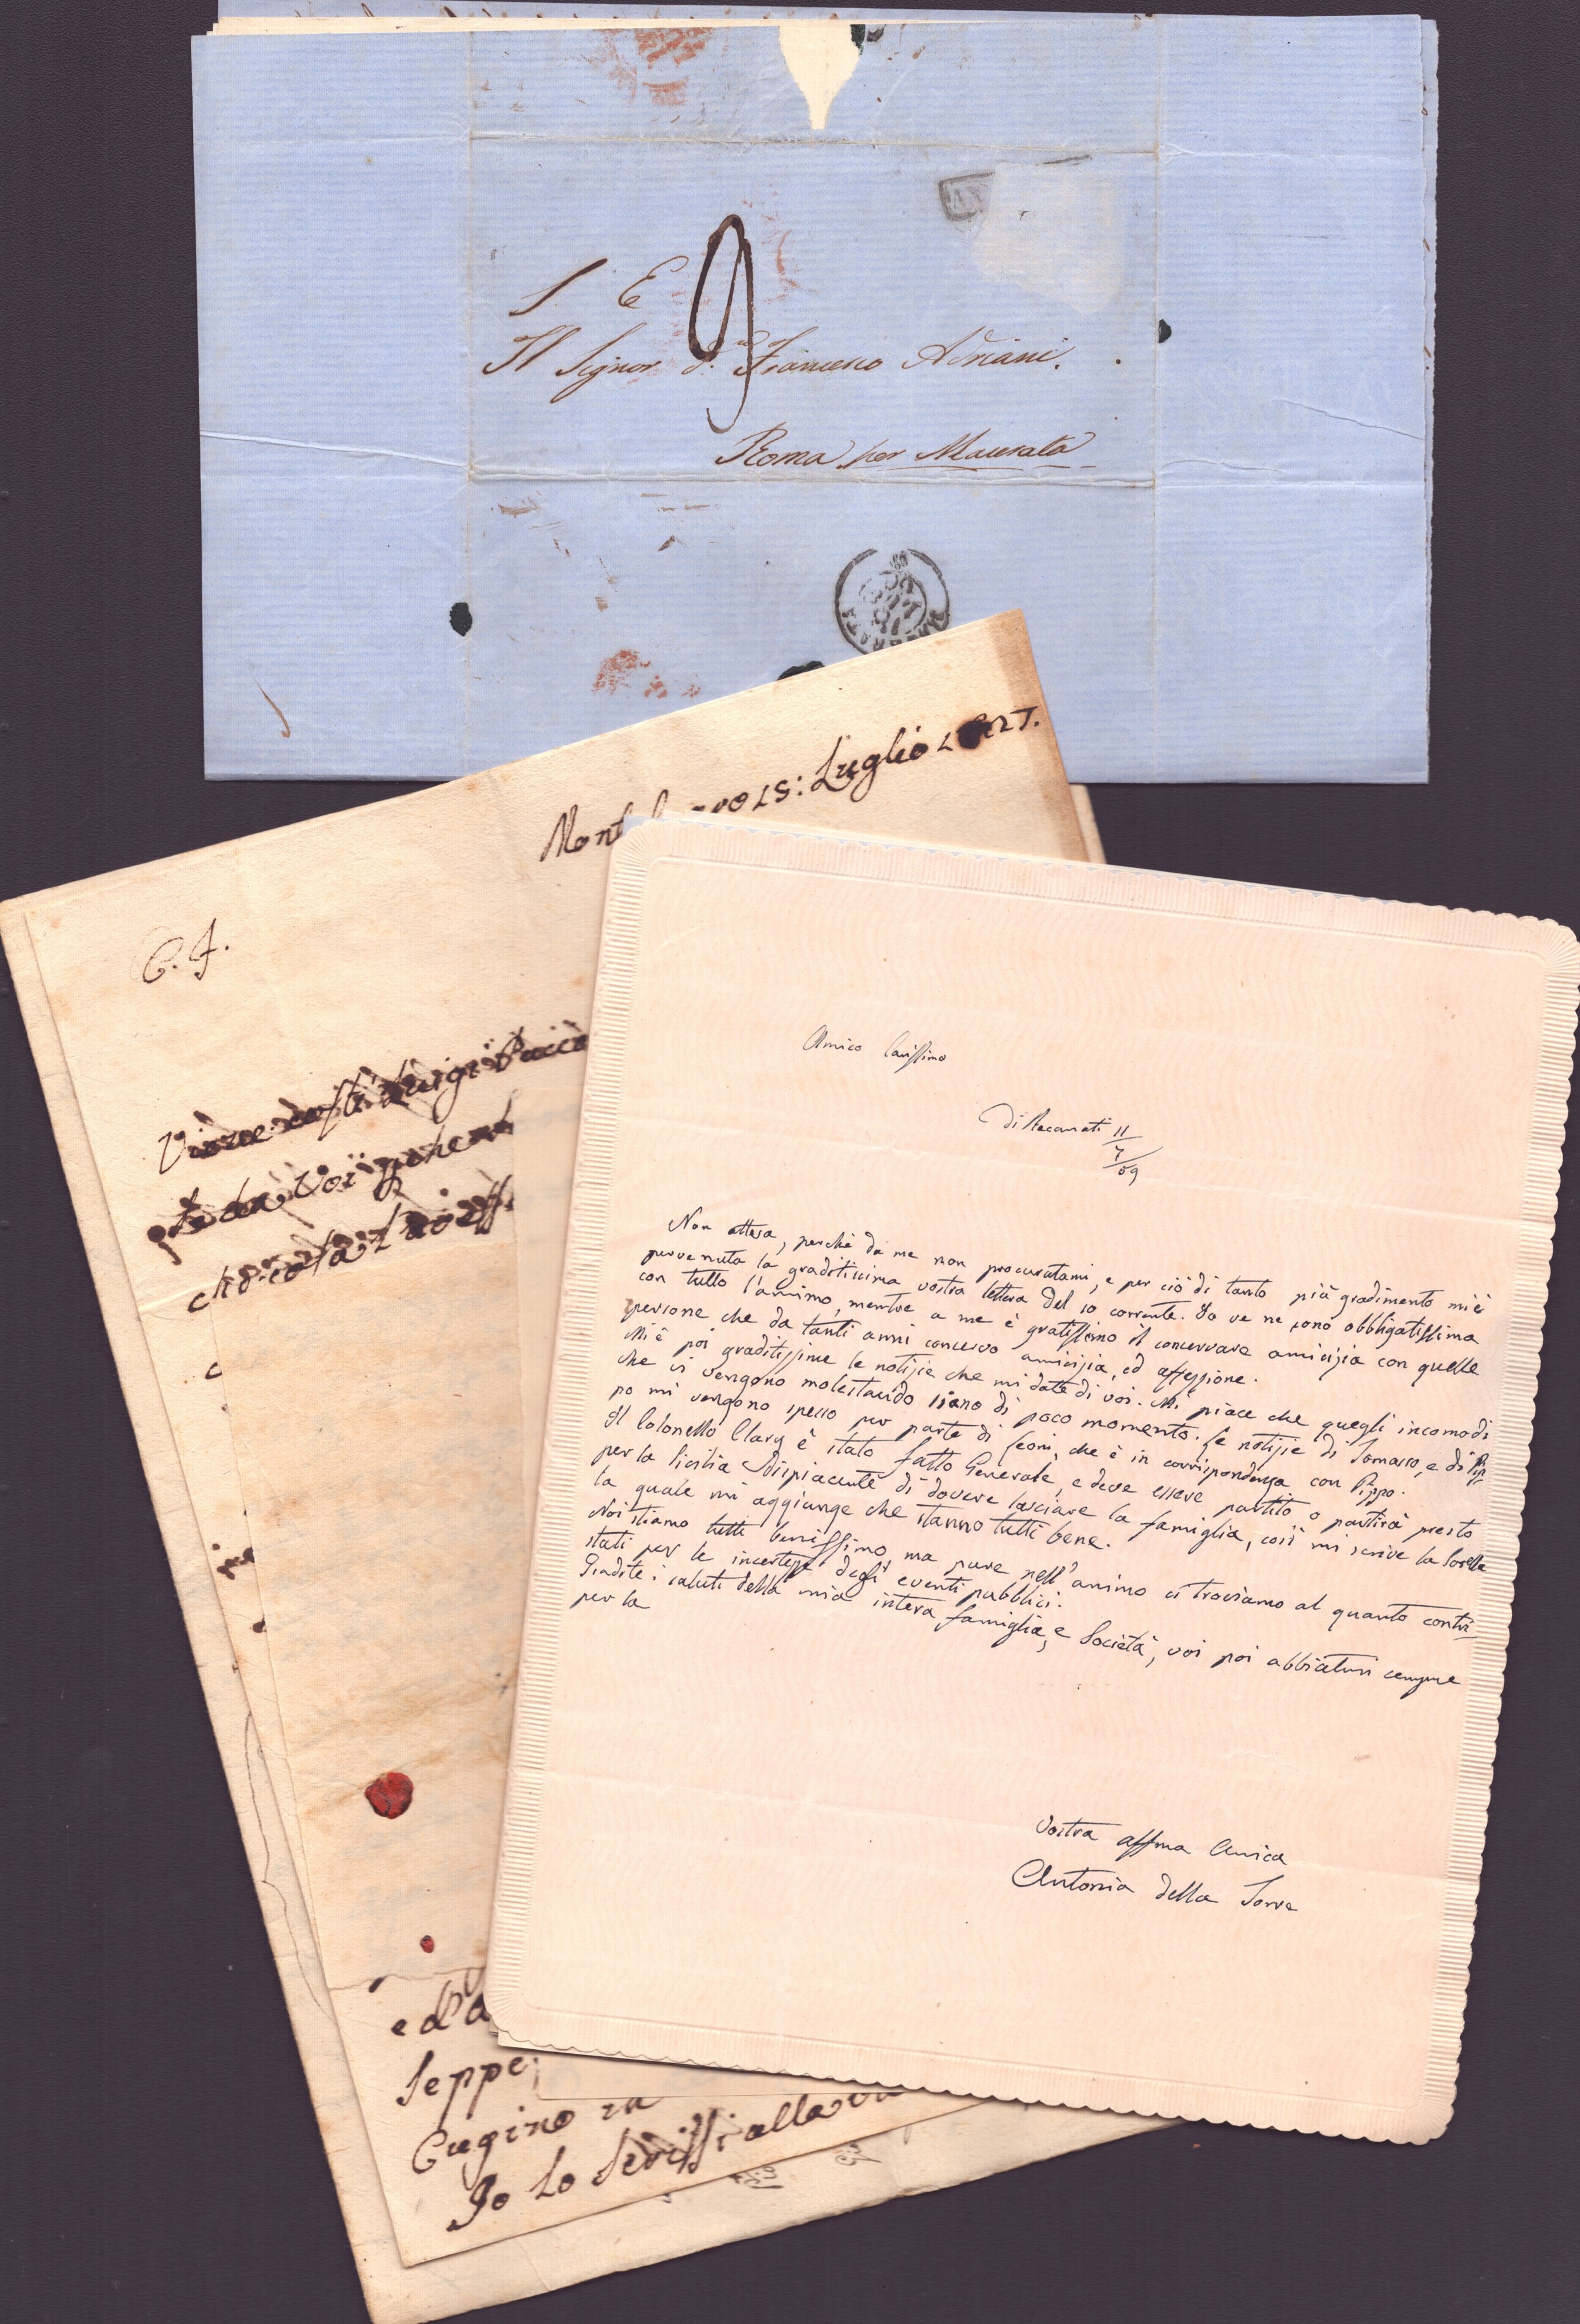 S E
9
Il Signor D. Francesco Adriani.
Roma per Macerata
MACERATA
Luglio
C. F.
Luigi
da Voi
Amico Carissimo
Di Recanati 11/7/59
Non attesa, perchè da me non procuratami, e per ciò di tanto più gradimento mi è
pervenuta la graditissima vostra lettera del 10 corrente. Io ve ne sono obbligatissima
con tutto l'animo, mentre a me è gratissimo il conservare amicizia con quelle
persone che da tanti anni conservo amicizia, ed affezzione.
Mi è poi graditissime le notizie che mi date di voi. Mi piace che quegli incomodi
che vi vengono molestando siano di poco momento. Le notizie di Tomasso, e di Pip-
po mi vengono spesso per parte di Leoni, che è in corrispondenza con Pippo.
Il Colonello Clary è stato fatto Generale, e deve essere partito o partirà presto
per la Sicilia dispiacente di dovere lasciare la famiglia, così mi scrive la Sorella
la quale mi aggiunge che stanno tutti bene.
Noi stiamo tutti benissimo ma pure nell'animo ci troviamo al quanto contri-
stati per le incertezze degli eventi pubblici.
Gradite i saluti della mia intera famiglia, e Società, voi poi abbiatemi sempre
per la
Vostra affma Amica
Antonia della Torre
ed a
Seppe
Cugino in
Io Lo scrissi alla